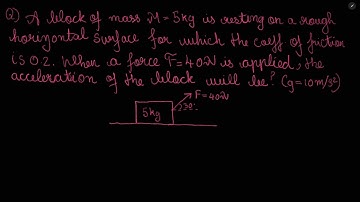 Q) A block of mass M=5kg is resting on a rough
horizontal surface for which the coeff of friction
is 0.2. When a force F=40N is applied, the
acceleration of the block will be? (g=10m/s²)
F=40N
30°
5kg